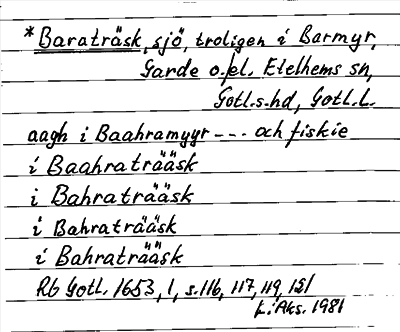 *Baraträsk, sjö, troligen i Barmyr,
Garde o./el. Etelhems sn,
Gotl.s.hd, Gotl.L.
aagh i Baahramyyr --- och fiskie
i Baahraträäsk
i Bahraträäsk
i Bahraträäsk
i Bahraträäsk
Rb Gotl. 1653, 1, s. 116, 117, 119, 151
L: Aks. 1981